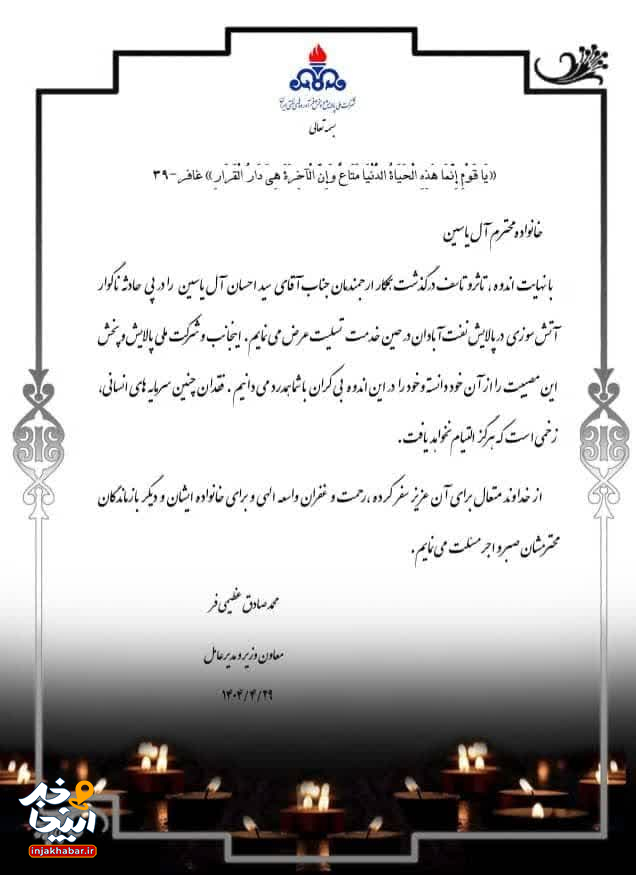 شرکت ملی پالایش و پخش فرآورده‌های نفتی ایران
بسمه تعالی
«يَا قَوْمِ إِنَّمَا هَذِهِ الْحَيَاةُ الدُّنْيَا مَتَاعٌ وَإِنَّ الْآخِرَةَ هِيَ دَارُ الْقَرَارِ» غافر -۳۹
خانواده محترم آل یاسین
با نهایت اندوه ، تاثر و تاسف درگذشت همکار ارجمندمان جناب آقای سید احسان آل یاسین را در پی حادثه ناگوار
آتش سوزی در پالایش نفت آبادان در حین خدمت تسلیت عرض می نمایم. اینجانب و شرکت ملی پالایش و پخش
این مصیبت را از آن خود دانسته و خود را در این اندوه بی کران با شما همدرد می دانیم . فقدان چنین سرمایه های انسانی،
زخمی است که هرگز التیام نخواهد یافت.
از خداوند متعال برای آن عزیز سفر کرده ،رحمت و غفران واسعه الهی و برای خانواده ایشان و دیگر بازماندگان
محترمشان صبر و اجر مسئلت می نمایم.
محمد صادق عظیمی فر
معاون وزیر و مدیرعامل
۱۴۰۴/۴/۲۹
اینجا خبر
injakhabar.ir